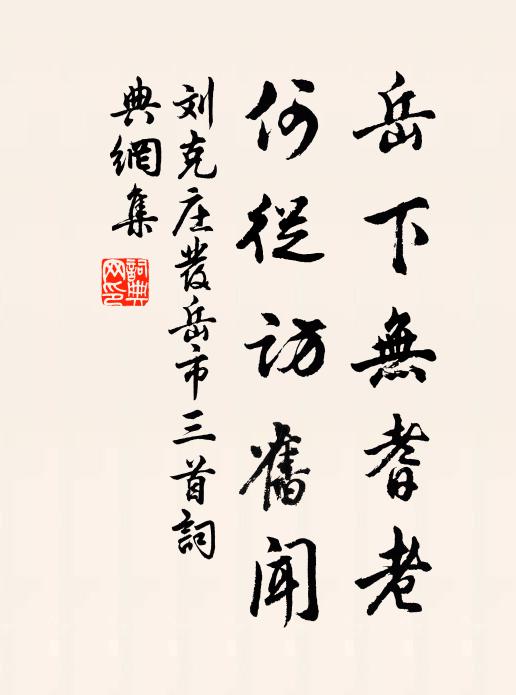 岳下無耆老
何從訪舊聞
刘克庄發岳市三首詞
典網集
詞典網印